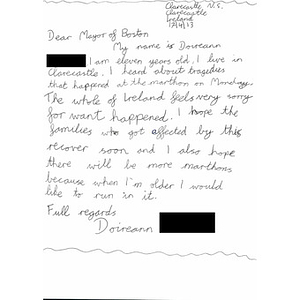 Clarecastle N.S.
Clarecastle
Ireland
17/4/13
Dear Mayor of Boston
My name is Doireann
I am eleven years old. I live in
Clarecastle. I heard about tragedies
that happened at the marthon on Monday.
The whole of Ireland feels very sorry
for want happened. I hope the
families who got affected by this
recover soon and I also hope
there will be more marthons
because when I'm older I would
like to run in it.
Full regards
Doireann